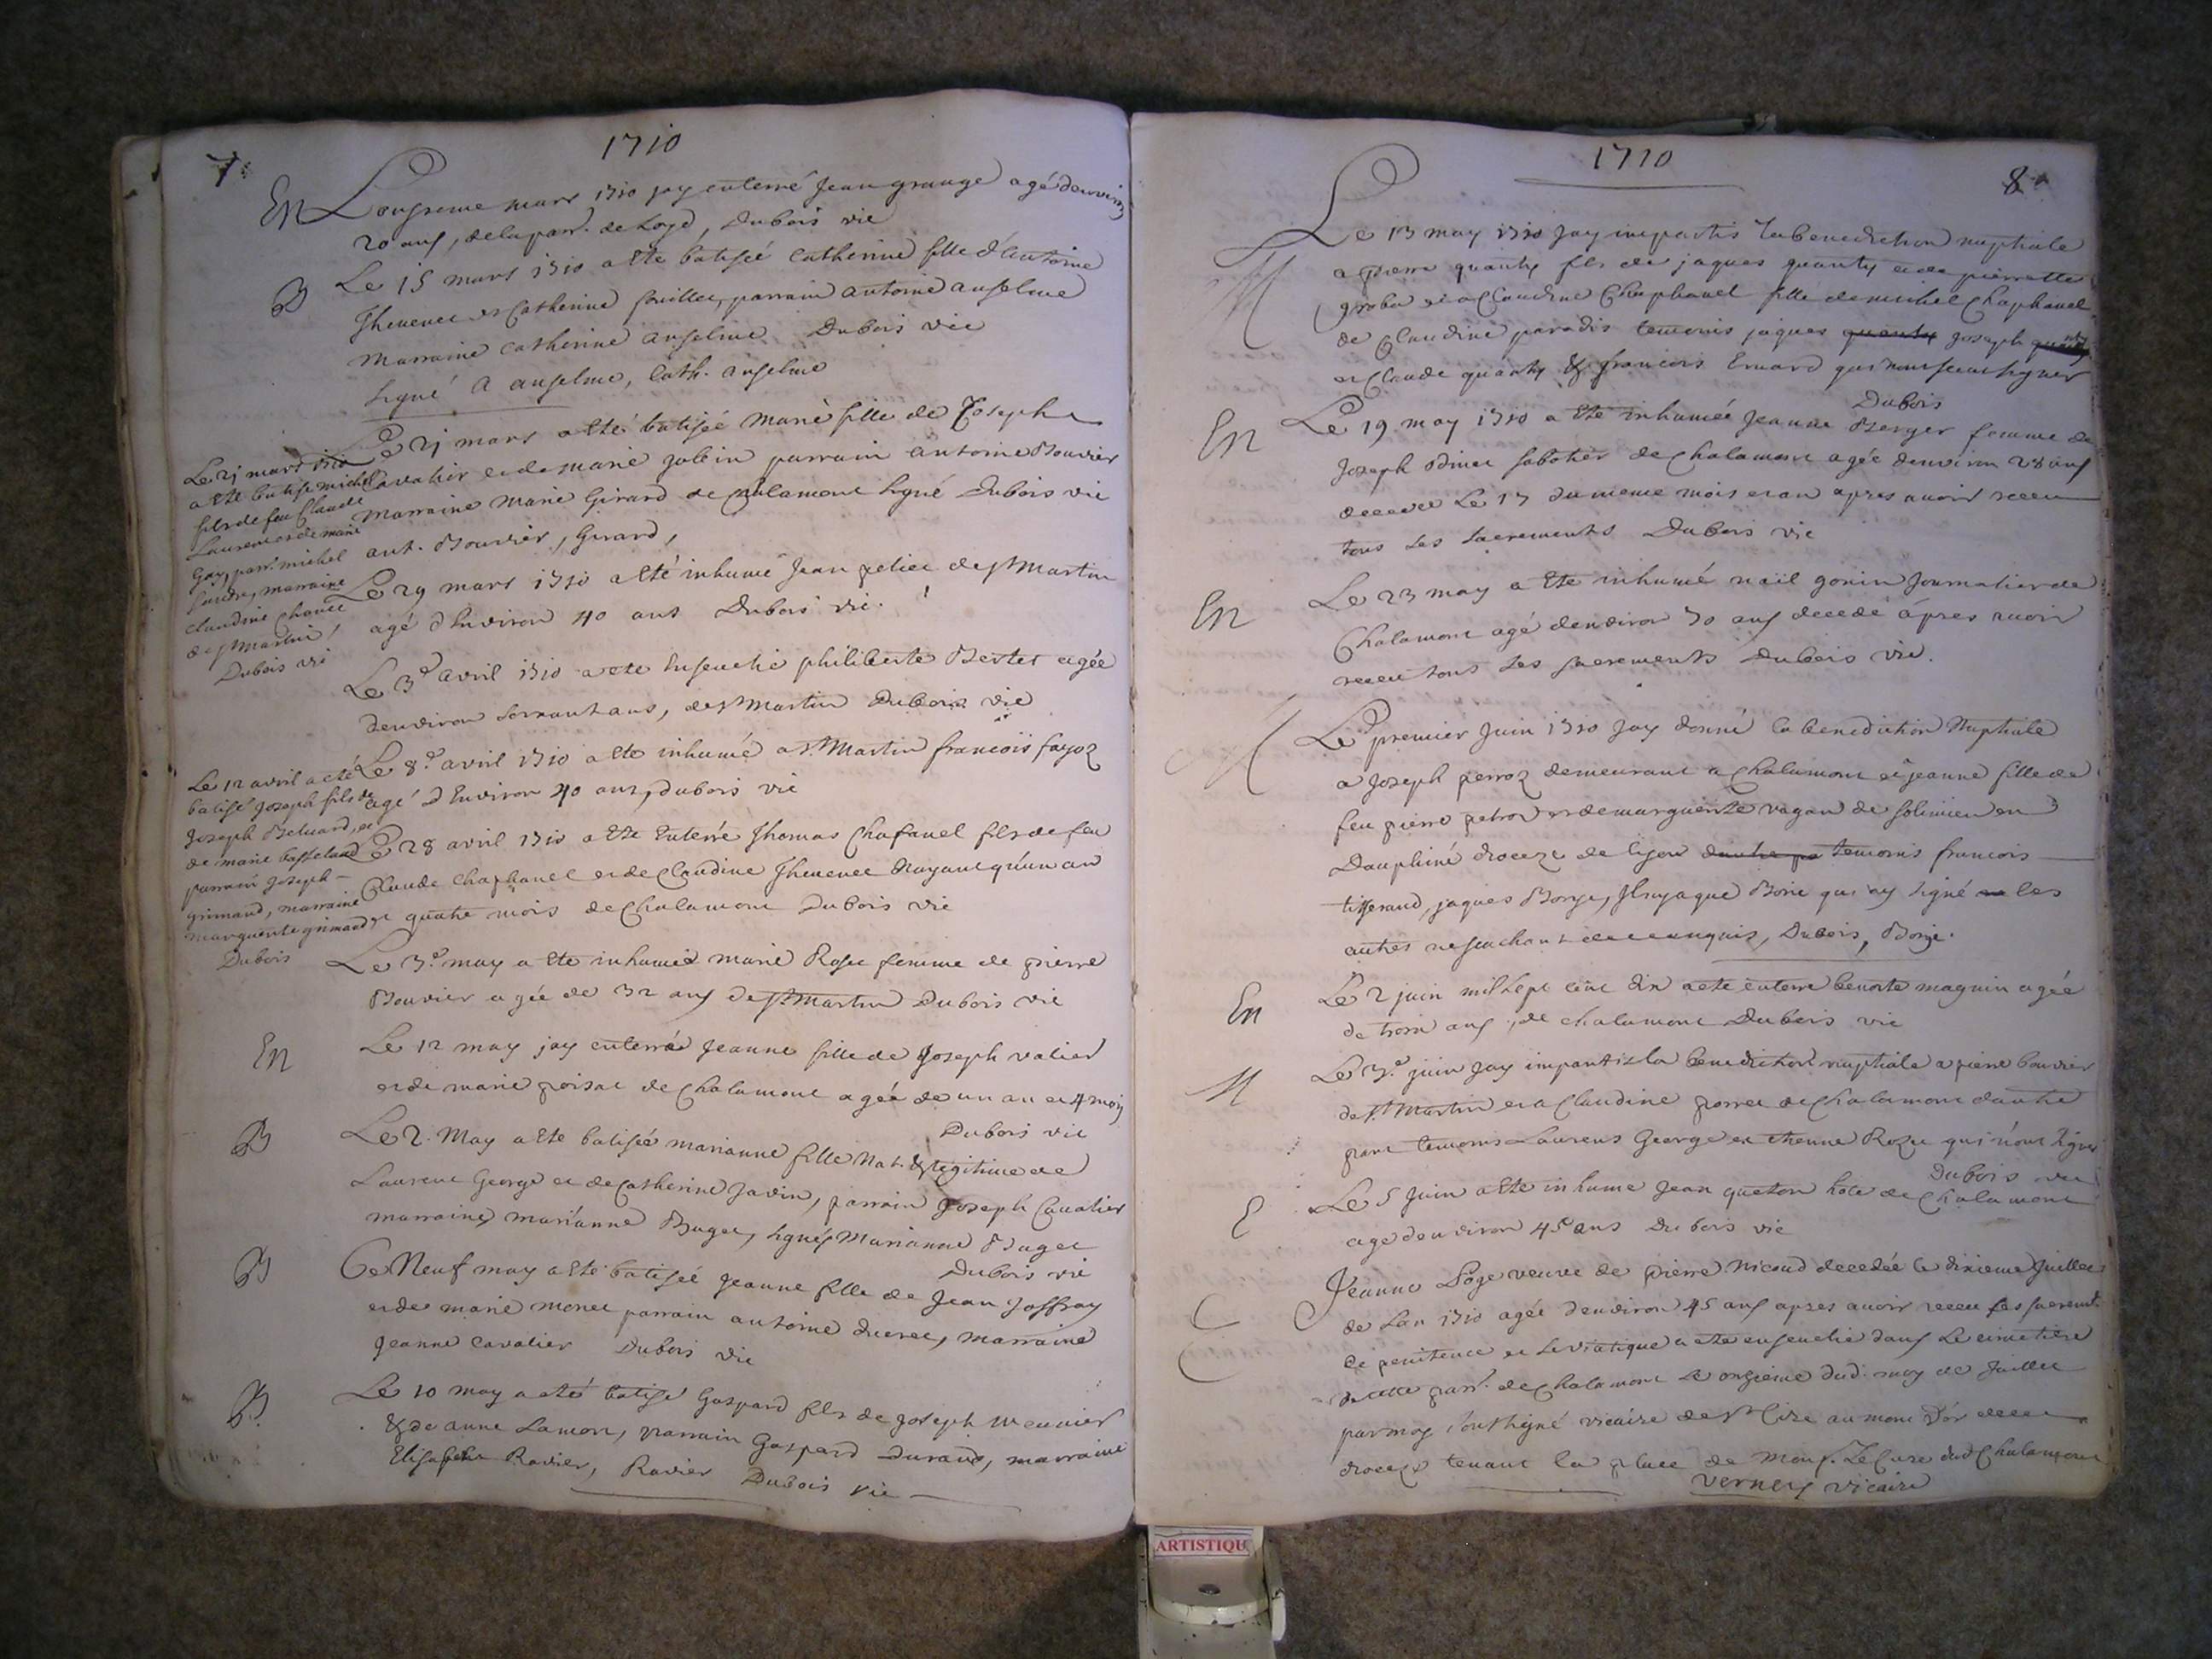 7
1710
En L'onsieme mars 1710 jay enterré Jean grange agé denviron
20 ans, de la parr. de Loye, Dubois vic
B Le 15 mars 1710 a este batisée Catherine fille d'Antoine
Thevenet et Catherine parrain antoine anselme
marraine catherine anselme Dubois vic
signé A anselme, Cath. anselme
Le 21 mars a esté batisée Marie fille de Joseph
Cavalier et de Marie Jolein parrain antoine Bouvier
marraine Marie Girard de Chalamont signé Dubois vic
ant. Bouvier, Girard,
Le 21 mars 1710
a este batisé michel
fils de feu Claude
Laurent et de marie
Gay, parr. michel
marraine
claudine
de st Martin
Dubois vic
Le 29 mars 1710 a esté inhumé Jean peliee de st Martin
agé d'Environ 40 ans Dubois vic.
Le 3e avril 1710 a ete Ensevelie philiberte Bertet agée
denviron soixant ans, de st Martin Dubois vic
Le 8e avril 1710 a ete inhumé a st Martin francois fayoz
agé d'Environ 40 ans, dubois vic
Le 12 avril a eté
batisé Joseph fils de
Joseph Beluard, et
de marie
parrain Joseph
grimaud, marraine
marguerite grimaud
Dubois
Le 28 avril 1710 a ete Enterré Thomas Chafanel fils de feu
Claude Chaphanel et de Claudine Thevenet Nayant qu'un an
et quatre mois de Chalamont Dubois vic
Le 3e may a ete inhumée marie Rosee femme de pierre
Bouvier agée de 32 ans de st Martin Dubois vic
En Le 12 may jay enterrée Jeanne fille de Joseph valier
et de marie poisat de Chalamont agée de un an et 4 mois
Dubois vic
B Le 2. May a ete batisée marianne fille Nat. & legitime de
Laurent George et de Catherine Javin, parrain Joseph Cavalier
marraine, marianne Buget, signés Marianne Buget
Dubois vic
B Ce Neuf may a ete batisée Jeanne fille de Jean Joffray
et de marie monet parrain antoine ducret, marraine
Jeanne Cavalier Dubois vic
B. Le 10 may a eté batisé Gaspard fils de Joseph meunier
& de anne Lamon, parrain Gaspard Durand, marraine
Elisabeth Ravier, Ravier Dubois vic
1710
8
M Le 13 may 1710 jay imparti la benediction nuptiale
a pierre quanty fils de jaques quanty et de pierrette
groba et a Claudine Chaphanel fille de michel Chaphanel
de Claudine paradis temoins jaques quanty Joseph quanty
et Claude quanty & francois Evrard qui n'ont sceu signer
Dubois
En Le 19 may 1710 a ete inhumée Jeanne Berger femme de
Joseph sabotier de Chalamont agée denviron 28 ans
decedée Le 17 du meme mois et an apres avoir receu
tous les sacrements Dubois vic
En Le 23 may a ete inhumé noël gonin Journalier de
Chalamont agé denviron 70 ans decedé apres avoir
receu tous les sacrements Dubois vic.
M Le premier Juin 1710 Jay donné la benediction Nuptiale
a Joseph perroz demeurant a Chalamont et jeanne fille de
feu pierre petrod et de marguerite vagan de solimieu en
Dauphiné dioceze de lyon temoins francois
tisserand, jaques Borge, qui ay signé les
autres ne sachant de ce enquis, Dubois, Borje.
En Le 2 juin mil sept cent dix a ete enterré benoite magnin agée
de trois ans, de chalamont Dubois vic
M Le 3e juin Jay imparti la benediction nuptiale a pierre bouvier
de st Martin et a Claudine porret de Chalamont dautre
part temoins Laurens George et etienne Rozee qui n'ont signé
Dubois vic
E Le 5 Juin a ete inhumé Jean queton hote de Chalamont
age denviron 45 ans Dubois vic
Jeanne Loge veuve de pierre Nicoud decedée le dixieme Juillet
de Lan 1710 agée denviron 45 ans apres avoir receu les sacremt.
de penitence et Le viatique a ete ensevelie dans Le cimetiere
de cette parr. de Chalamont Le onzieme dud. moy de Juillet
par moy soussigné vicaire de st Cire au mont d'or
diocese tenant la place de Mons. Le Curé dud Chalamont
verney vicaire
ARTISTIQU